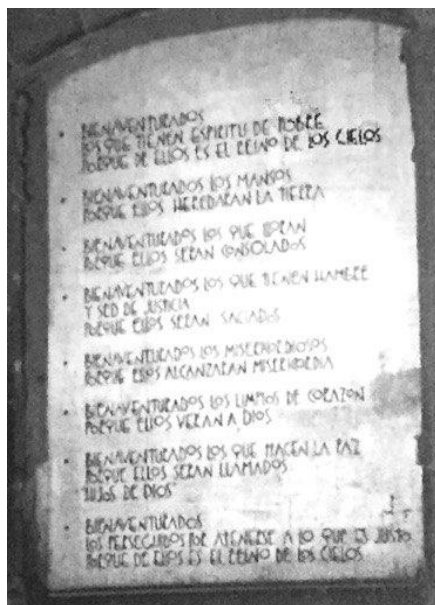 • BIENAVENTURADOS
LOS QUE TIENEN ESPIRITU DE POBRE
PORQUE DE ELLOS ES EL REINO DE LOS CIELOS
• BIENAVENTURADOS LOS MANSOS
PORQUE ELLOS HEREDARAN LA TIERRA
• BIENAVENTURADOS LOS QUE LLORAN
PORQUE ELLOS SERAN CONSOLADOS
• BIENAVENTURADOS LOS QUE TIENEN HAMBRE
Y SED DE JUSTICIA
PORQUE ELLOS SERAN SACIADOS
• BIENAVENTURADOS LOS
PORQUE ELLOS ALCANZARAN MISERICORDIA
• BIENAVENTURADOS LOS LIMPIOS DE CORAZON
PORQUE ELLOS VERAN A DIOS
• BIENAVENTURADOS LOS QUE HACEN LA PAZ
PORQUE ELLOS SERAN LLAMADOS
"HIJOS DE DIOS"
• BIENAVENTURADOS
LOS PERSEGUIDOS POR ATENERSE A LO QUE ES JUSTO
PORQUE DE ELLOS ES EL REINO DE LOS CIELOS